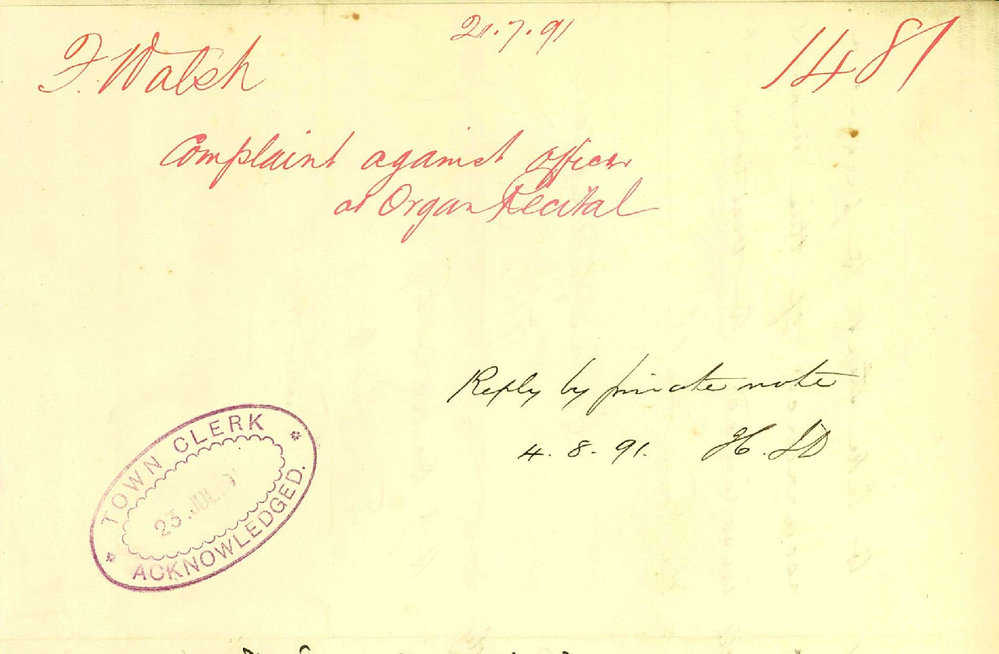 21.7.91
F. Walsh
1487
Complaint against officer
at Organ Recital
Reply by private note
4.8.91. H.
TOWN CLERK
23 JUL. 91
ACKNOWLEDGED.